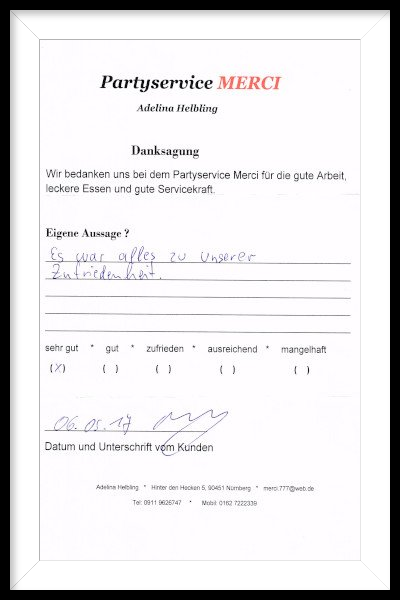 Partyservice MERCI
Adelina Helbling
Danksagung
Wir bedanken uns bei dem Partyservice Merci für die gute Arbeit,
leckere Essen und gute Servicekraft.
Eigene Aussage ?
Es war alles zu unserer
Zufriedenheit.
sehr gut * gut * zufrieden * ausreichend * mangelhaft
(X) ( ) ( ) ( ) ( )
06.05.17
Datum und Unterschrift vom Kunden
Adelina Helbling * Hinter den Hecken 5, 90451 Nürnberg * merci.777@web.de
Tel: 0911 9626747 * Mobil: 0162 7222339